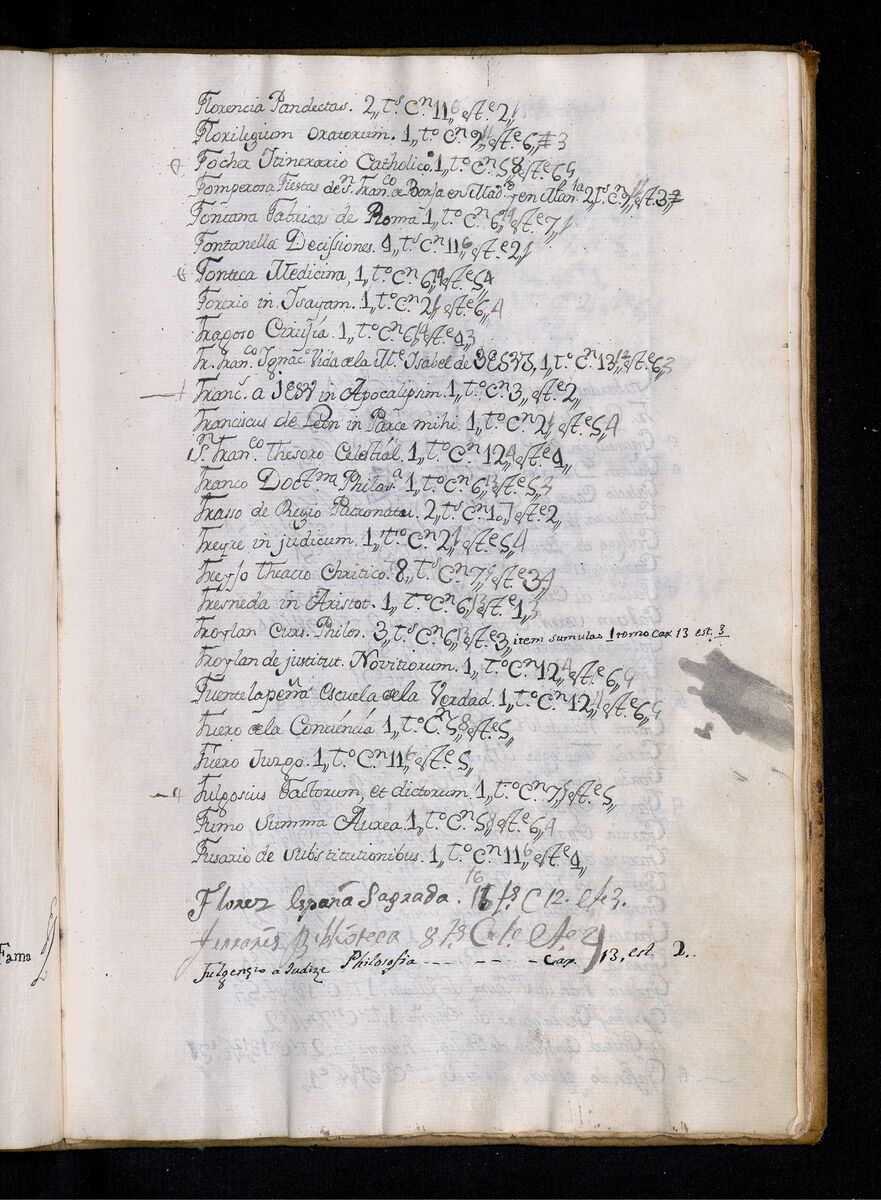 Florencia Pandectas. 2,, t.s C.n 11,, est.e 2,,
Florilegium Oratorum. 1,, t.o C.n 9,, est.e 6,, 3
Focher Itinerario Catholico. 1,, t.o C.n 5,, 8 est.e 6,,
Pomperosa Fiestas de S.n Fran.co de Borja en Mad.d y en Man.la 2,, t.s C.n 9,, est. 3,,
Fontana Fabricas de Roma 1,, t.o C.n 6,, 14 est.e 7,,
Fontanella Decissiones. 4,, t.s C.n 11,, 6 est.e 2,,
Fonteca Medicina, 1,, t.o C.n 6,, 14 est.e 5,, 4
Forerio in Isayam. 1,, t.o C.n 2,, est.e 6,, 4
Fragoso Cirusia. 1,, t.o C.n 6,, 14 est.e 4,, 3
Fr. Fran.co Ignac.o Vida de la M.e Isabel de JESVS, 1,, t.o C.n 13,, 12 est.e 6,, 3
Franc.s a JESV in Apocalipsim. 1,, t.o C.n 3,, est.e 2,,
Franciscus de Leon in Parce mihi. 1,, t.o C.n 2,, est.e 5,, 4
S.n Fran.co thesoro Celestial. 1,, t.o C.n 12,, 4 est.e 4,,
Franco Doct.rna Philos.a 1,, t.o C.n 6,, 13 est.e 5,, 3
Frasso de Regio Patronatu. 2,, t.s C.n 10,, 7 est.e 2,,
Freyre in judicum. 1,, t.o C.n 2,, est.e 5,, 4
Freyjo theatro Chritico. 8,, t.s C.n 7,, 5 est.e 3,, 4
Fresneda in Aristot. 1,, t.o C.n 6,, 13 est.e 1,, 3
Froylan Curs. Philos. 3,, t.s C.n 6,, 13 est.e 3,, item sumulas 1 tomo cax 13 est. 3
Froylan de justitut. Novitiorum. 1,, t.o C.n 12,, 4 est.e 6,,
Fuente la peña escuela de la Verdad. 1,, t.o C.n 12,, 4 est.e 6,,
Fuero de la Conciencia 1,, t.o C.n 5,, 8 est.e 5,,
Fuero Juzgo. 1,, t.o C.n 11,, 6 est.e 5,,
Fulgosius Factorum, et dictorum. 1,, t.o C.n 7,, 5 est.e 5,,
Fumo Summa Aurea. 1,, t.o C.n 5,, 8 est.e 6,, 4
Fusario de Substitutionibus. 1,, t.o C.n 11,, 6 est.e 4,,
16
Florez España Sagrada. 16 ts C 12. este 3.
Ferraris Bibliòteca 8 ts C est.e
Fulgenzio a Iudize Philosofia - - - - - Cax. 13, est. 2..
Fama